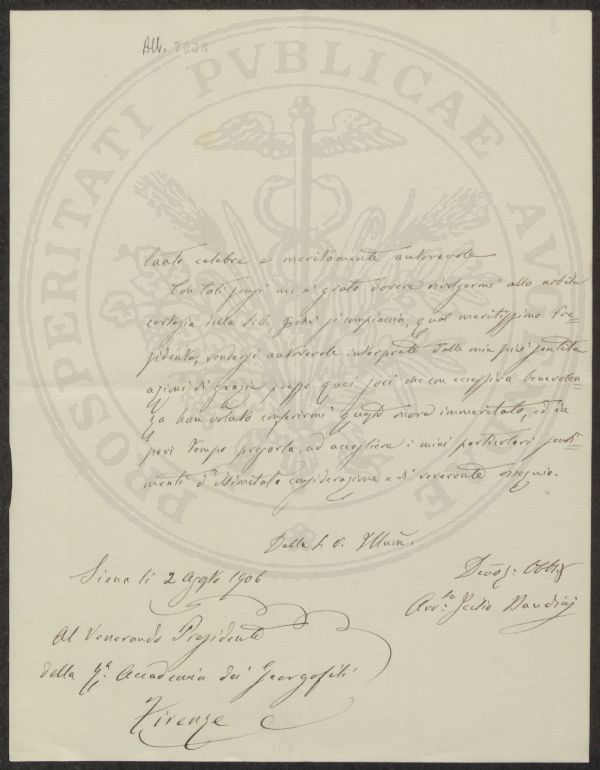 All. 7938
PROSPERITATI PVBLICAE AVGENDAE
tanto celebre e meritamente autorevole
Con tali sensi mi è grato dovere rivolgermi alla nobile
cortesia della S. V. perché si compiaccia, qual meritissimo Pre=
sidente, rendersi autorevole interprete delle mie più sentite
azioni di grazie presso quei soci che con eccessiva benevolen=
za han voluto conferirmi questo onore immeritato, ed in
pari tempo pregarla ad accogliere i miei particolari senti=
menti d'illimitata considerazione e di reverente ossequio.
Della S. V. Illma.
Siena li 2 Agosto 1906
Devos. Obblg
Avv.to Bandini
Al Venerando Presidente
della Accademia dei Georgofili
Firenze